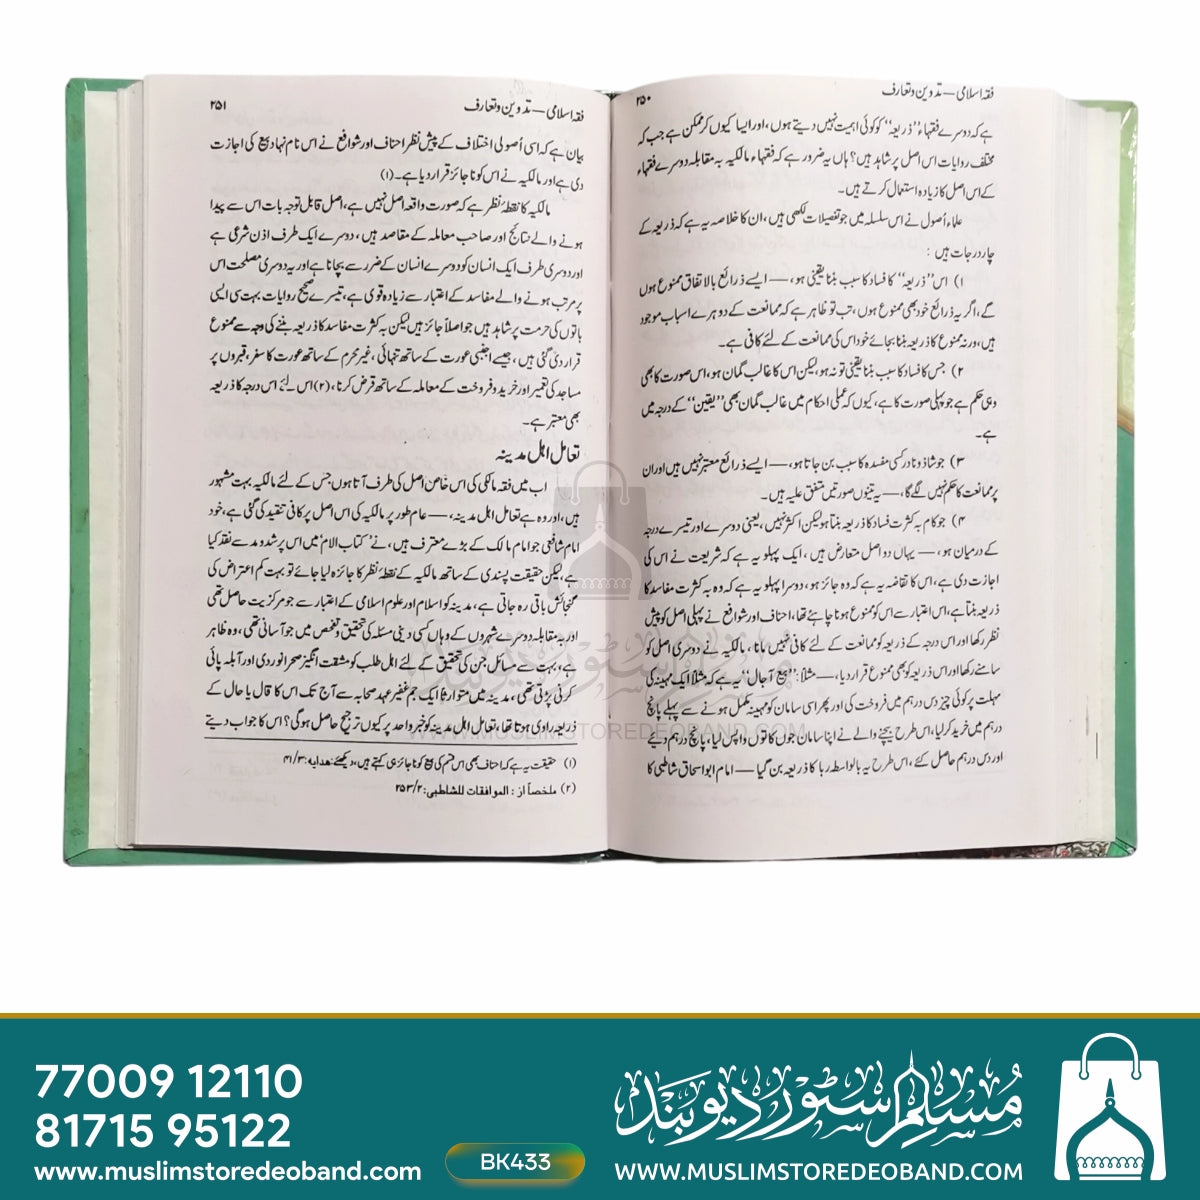 فقہ اسلامی — تدوین و تعارف
۲۵۰
ہے کہ دوسرے فقہاء ’’ذریعہ‘‘ کو کوئی اہمیت نہیں دیتے ہوں، اور ایسا کیوں کر ممکن ہے جب کہ
مختلف روایات اس اصل پر شاہد ہیں؟ ہاں یہ ضرور ہے کہ فقہاء مالکیہ بہ مقابلہ دوسرے فقہاء
کے اس اصل کا زیادہ استعمال کرتے ہیں۔
علماء اُصول نے اس سلسلہ میں جو تفصیلات لکھی ہیں، ان کا خلاصہ یہ ہے کہ ذریعہ کے
چار درجات ہیں :
۱) اس ’’ذریعہ‘‘ کا فساد کا سبب بننا یقینی ہو، — ایسے ذرائع بالاتفاق ممنوع ہوں
گے، اگر یہ ذرائع خود بھی ممنوع ہوں، تب تو ظاہر ہے کہ ممانعت کے دوہرے اسباب موجود
ہیں، ورنہ ممنوع کا ذریعہ بننا بجائے خود اس کی ممانعت کے لئے کافی ہے۔
۲) جس کا فساد کا سبب بننا یقینی تو نہ ہو، لیکن اس کا غالب گمان ہو، اس صورت کا بھی
وہی حکم ہے جو پہلی صورت کا ہے، کیوں کہ عملی احکام میں غالب گمان بھی ’’یقین‘‘ کے درجہ میں
ہے۔
۳) جو شاذ و نادر کسی مفسدہ کا سبب بن جاتا ہو، — ایسے ذرائع معتبر نہیں ہیں اور ان
پر ممانعت کا حکم نہیں لگے گا، — یہ تینوں صورتیں متفق علیہ ہیں۔
۴) جو کام بہ کثرت فساد کا ذریعہ بنتا ہو لیکن اکثر نہیں، یعنی دوسرے اور تیسرے درجہ
کے درمیان ہو، — یہاں دو اصل متعارض ہیں، ایک پہلو یہ ہے کہ شریعت نے اس کی
اجازت دی ہے، اس کا تقاضہ یہ ہے کہ وہ جائز ہو، دوسرا پہلو یہ ہے کہ وہ بہ کثرت مفاسد کا
ذریعہ بنتا ہے، اس اعتبار سے اس کو ممنوع ہونا چاہئے تھا، احناف اور شوافع نے پہلی اصل کو پیش
نظر رکھا اور اس درجہ کے ذریعہ کو ممانعت کے لئے کافی نہیں مانا، مالکیہ نے دوسری اصل کو
سامنے رکھا اور اس ذریعہ کو بھی ممنوع قرار دیا، — مثلاً: ’’بیع آجال‘‘ یہ ہے کہ مثلاً ایک مہینہ کی
مہلت پر کوئی چیز دس درہم میں فروخت کی اور پھر اسی سامان کو مہینہ مکمل ہونے سے پہلے پانچ
درہم میں خرید کر لیا، اس طرح بیچنے والے نے اپنا سامان جوں کا توں واپس لیا، پانچ درہم دیے
اور دس درہم حاصل کئے، اس طرح یہ بالواسطہ ربا کا ذریعہ بن گیا — امام ابواسحاق شاطبی کا
فقہ اسلامی — تدوین و تعارف
۲۵۱
بیان ہے کہ اسی اُصولی اختلاف کے پیش نظر احناف اور شوافع نے اس نام نہاد بیع کی اجازت
دی ہے اور مالکیہ نے اس کو ناجائز قرار دیا ہے۔ (۱)
مالکیہ کا نقطۂ نظر ہے کہ صورتِ واقعہ اصل نہیں ہے، اصل قابل توجہ بات اس سے پیدا
ہونے والے نتائج اور صاحب معاملہ کے مقاصد ہیں، دوسرے ایک طرف اذن شرعی ہے
اور دوسری طرف ایک انسان کو دوسرے انسان کے ضرر سے بچانا ہے اور یہ دوسری مصلحت اس
پر مرتب ہونے والے مفاسد کے اعتبار سے زیادہ قوی ہے، تیسرے صحیح روایات بہت سی ایسی
باتوں کی حرمت پر شاہد ہیں جو اصلاً جائز ہیں لیکن بہ کثرت مفاسد کا ذریعہ بننے کی وجہ سے ممنوع
قرار دی گئی ہیں، جیسے اجنبی عورت کے ساتھ تنہائی، غیر محرم کے ساتھ عورت کا سفر، قبروں پر
مساجد کی تعمیر اور خرید و فروخت کے معاملہ کے ساتھ قرض کرنا، (۲) اس لئے اس درجہ کا ذریعہ
بھی معتبر ہے۔
تعامل اہل مدینہ
اب میں فقہ مالکی کی اس خاص اصل کی طرف آتا ہوں جس کے لئے مالکیہ بہت مشہور
ہیں، اور وہ ہے تعامل اہل مدینہ، — عام طور پر مالکیہ کی اس اصل پر کافی تنقید کی گئی ہے، خود
امام شافعی جو امام مالک کے بڑے معترف ہیں، نے ’کتاب الام‘ میں اس پر شد و مد سے نقد کیا
ہے، لیکن حقیقت پسندی کے ساتھ مالکیہ کے نقطۂ نظر کا جائزہ لیا جائے تو بہت کم اعتراض کی
گنجائش باقی رہ جاتی ہے، مدینہ کو اسلام اور علوم اسلامی کے اعتبار سے جو مرکزیت حاصل تھی
اور بہ مقابلہ دوسرے شہروں کے وہاں کسی دینی مسئلہ کی تحقیق و تفحص میں جو آسانی تھی، وہ ظاہر
ہے، بہت سے مسائل جن کی تحقیق کے لئے اہل طلب کو مشقت انگیز صحرا نوردی اور آبلہ پائی
کرنی پڑتی تھی، مدینہ میں متوارثاً ایک جم غفیر عہد صحابہ سے آج تک اس کا قال یا حال کے
ذریعہ راوی ہوتا تھا، تعامل اہل مدینہ کو خبر واحد پر کیوں ترجیح حاصل ہوگی؟ اس کا جواب دیتے
(۱) حقیقت یہ ہے کہ احناف بھی اس قسم کی بیع کو ناجائز ہی کہتے ہیں، دیکھئے: هدايه: ۴۱/۳
(۲) ملخصاً از : الموافقات للشاطبی: ۲۵۳/۲
مسلم سٹور دیوبند
WWW.MUSLIMSTOREDEOBAND.COM
77009 12110
81715 95122
www.muslimstoredeoband.com
BK433
مسلم سٹور دیوبند
WWW.MUSLIMSTOREDEOBAND.COM